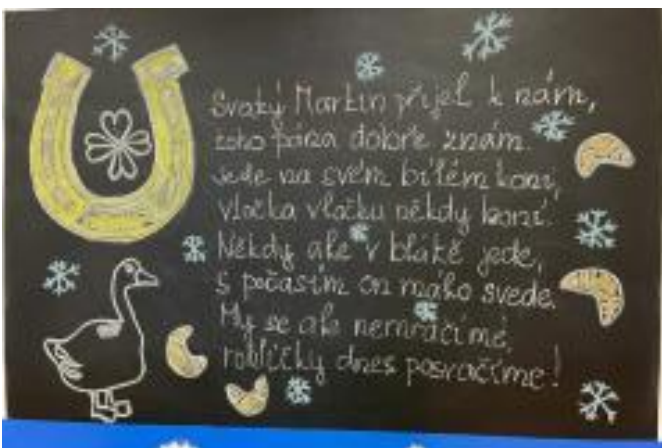 Svatý Martin přijel k nám,
toho pána dobře znám.
Jede na svém bílém koni,
vločka vločku někdy honí.
Někdy ale v blátě jede,
s počasím on málo svede.
My se ale nemračíme,
rohlíčky dnes posvačíme!